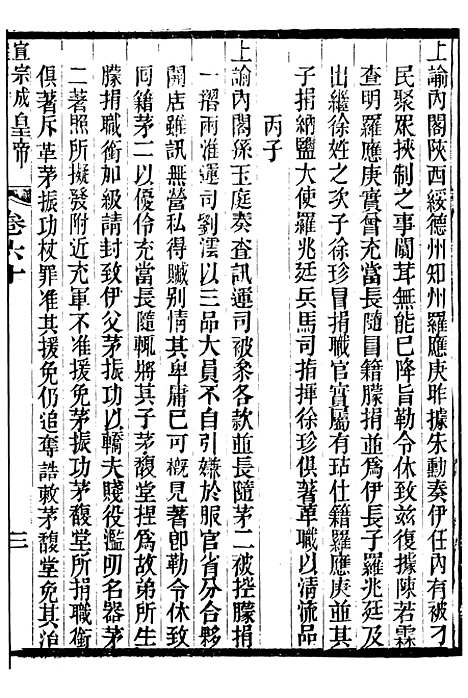 上諭內閣陝西綏德州知州羅應庚昨據朱勳奏伊任內有被刁
民聚眾挾制之事闒茸無能已降旨勒令休致兹復據陳若霖
查明羅應庚實曾充當長隨冒籍朦捐並爲伊長子羅兆廷及
出繼徐姓之次子徐珍冒捐職官實屬有玷仕籍羅應庚並其
子捐納鹽大使羅兆廷兵馬司指揮徐珍俱著革職以清流品
丙子
上諭內閣孫玉庭奏査訊運司被黍各款並長隨茅二被控朦捐
一摺兩淮運司劉澐以三品大員不自引嫌於服官省分合夥
開店雖訊無營私得贓別情其卑庸已可槪見著卽勒令休致
同籍茅二以優伶充當長隨輒將其子茅馥堂捏爲故弟所生
朦捐職銜加級請封致伊父茅振功以轎夫賤役濫叨名器茅
二著照所擬發附近充軍不准援免茅振功茅馥堂所捐職銜
俱著斥革茅振功杖罪准其援免仍追奪誥敕茅馥堂免其治
宣宗成皇帝 卷六十 三